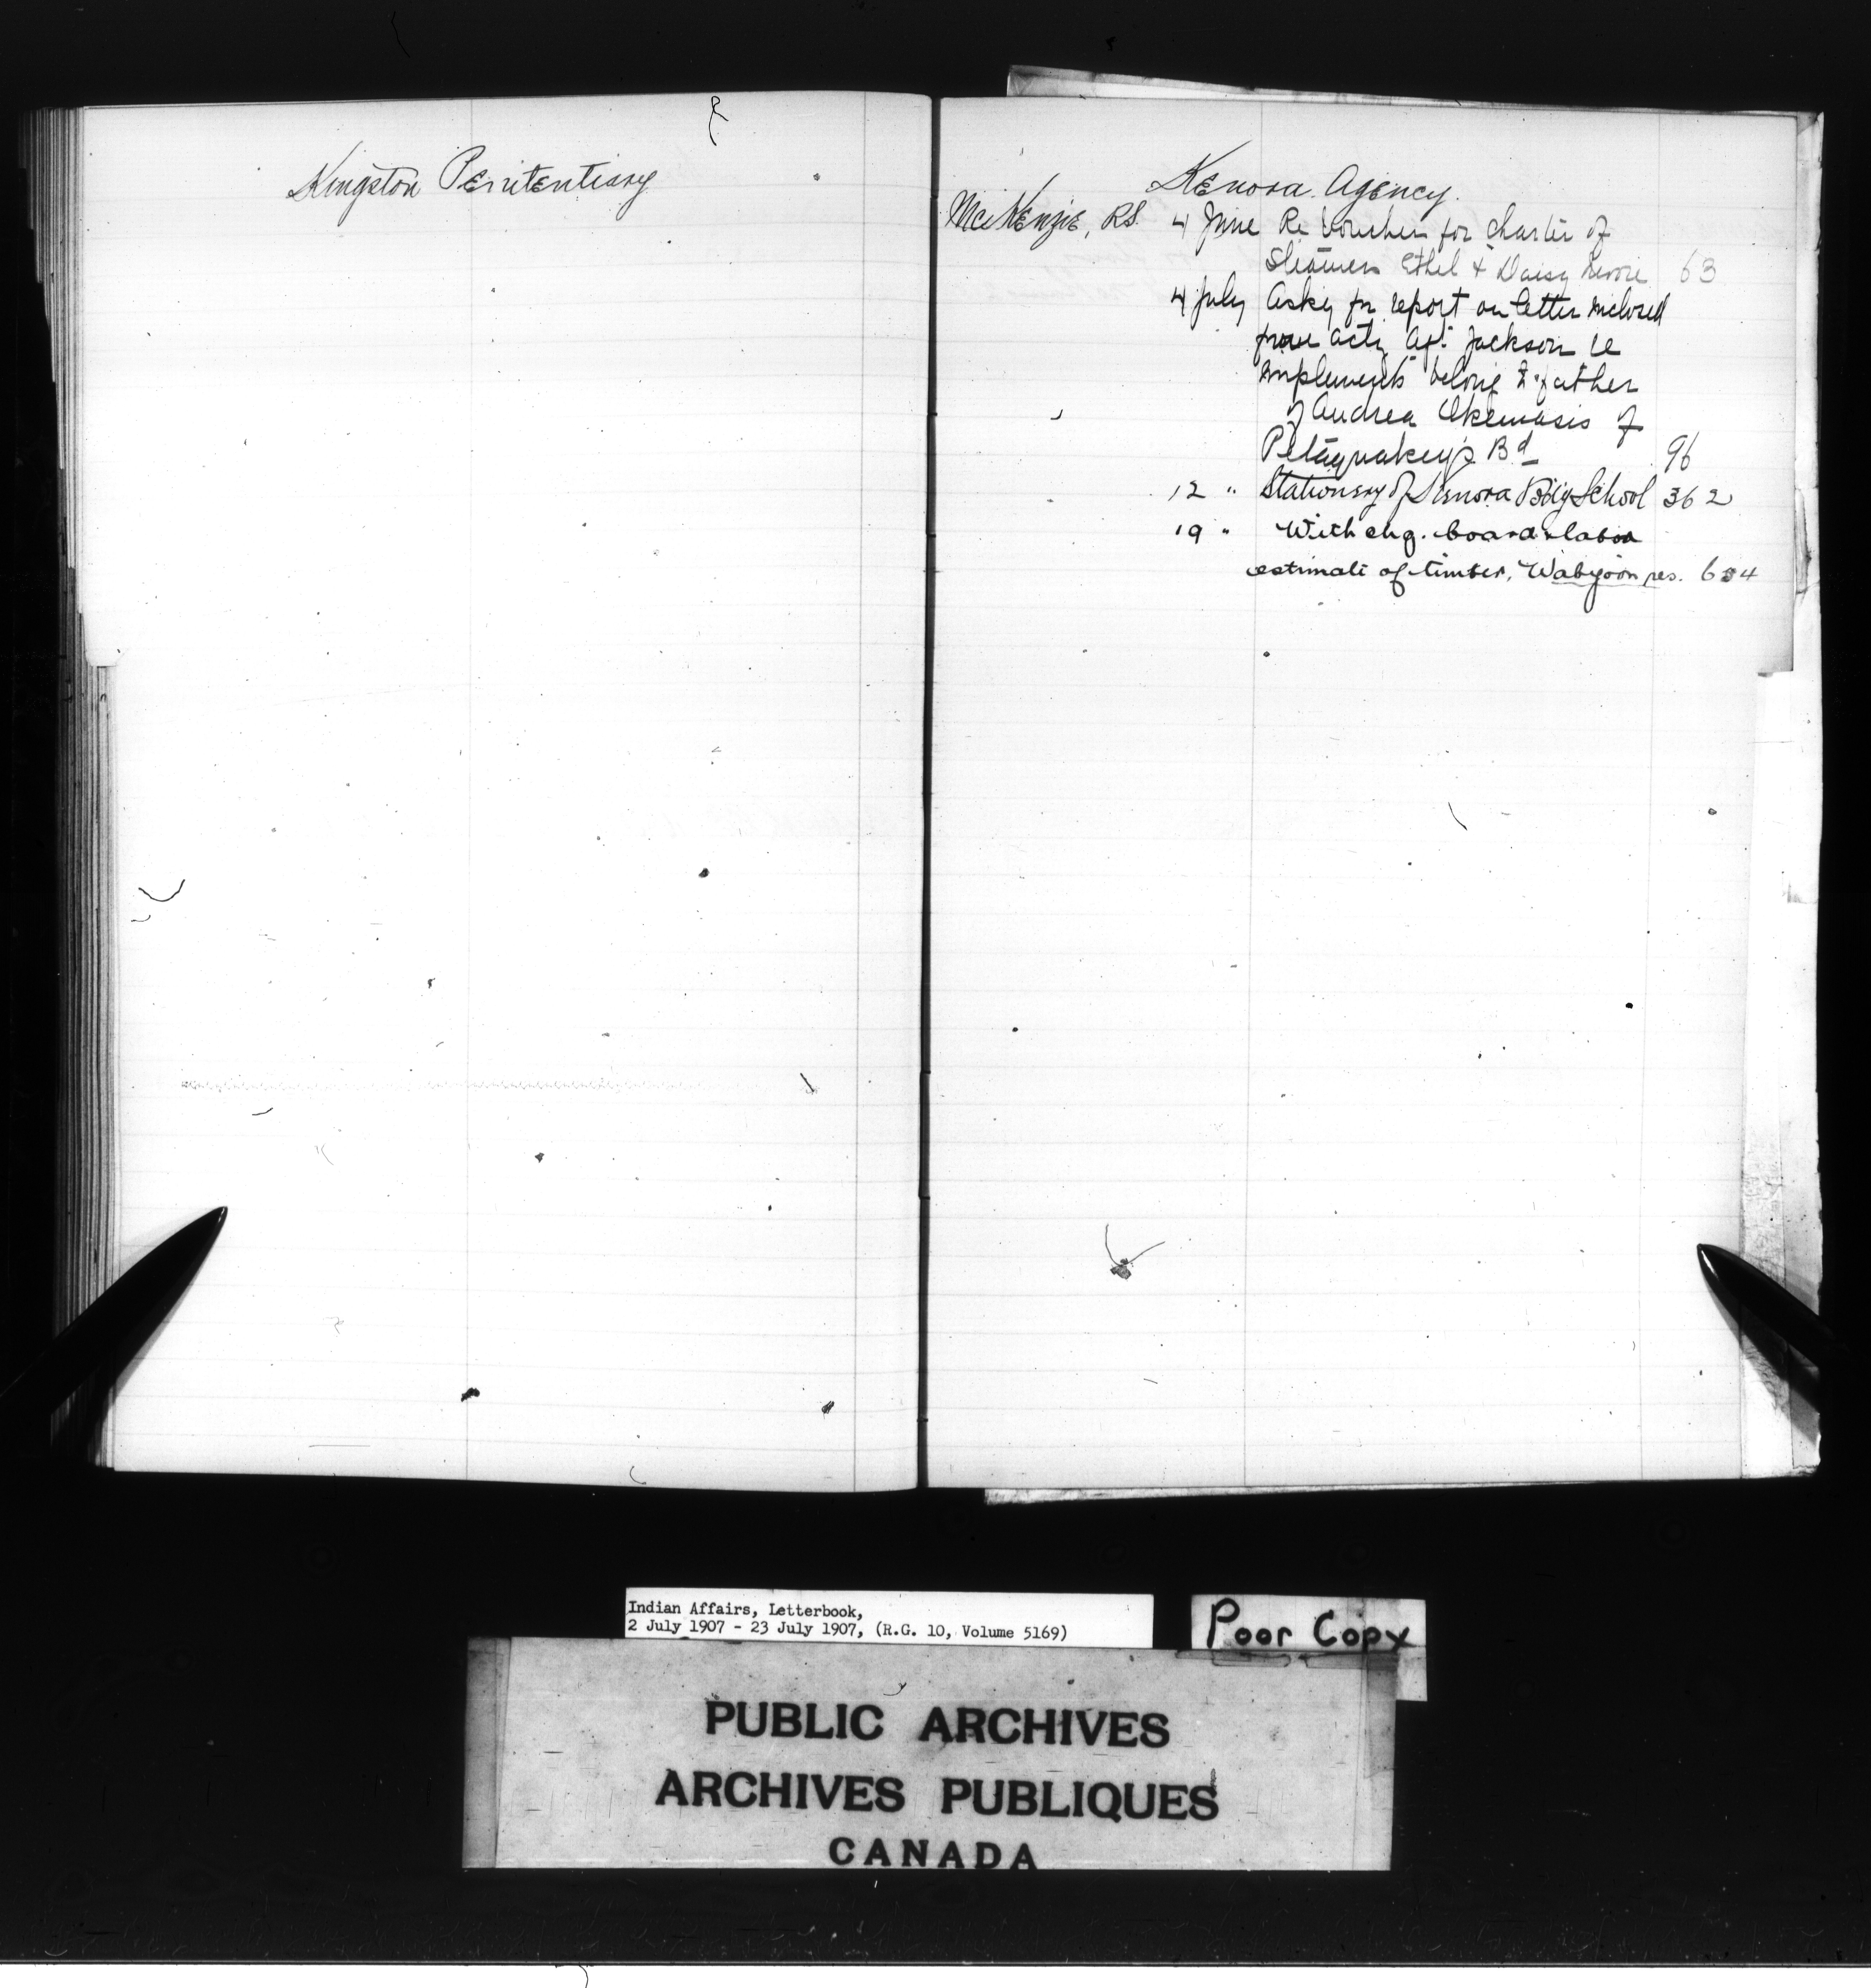 Kingston Penitentiary
Kenora Agency.
McKenzie, R.S. 4 June Re Voucher for charter of
Steamers Ethel & Daisy Moore 63
4 July Askg for report on letter inclosed
from actg Agt. Jackson re
implements belong to father
of Andrea Okemasis of
Petaquakey's Bd 96
12 " Stationery of Kenora Bdg School 362
19 " With chq. board & labor
estimate of timber, Wabigoon res. 634
Indian Affairs, Letterbook,
2 July 1907 - 23 July 1907, (R.G. 10, Volume 5169)
Poor Copy
PUBLIC ARCHIVES
ARCHIVES PUBLIQUES
CANADA